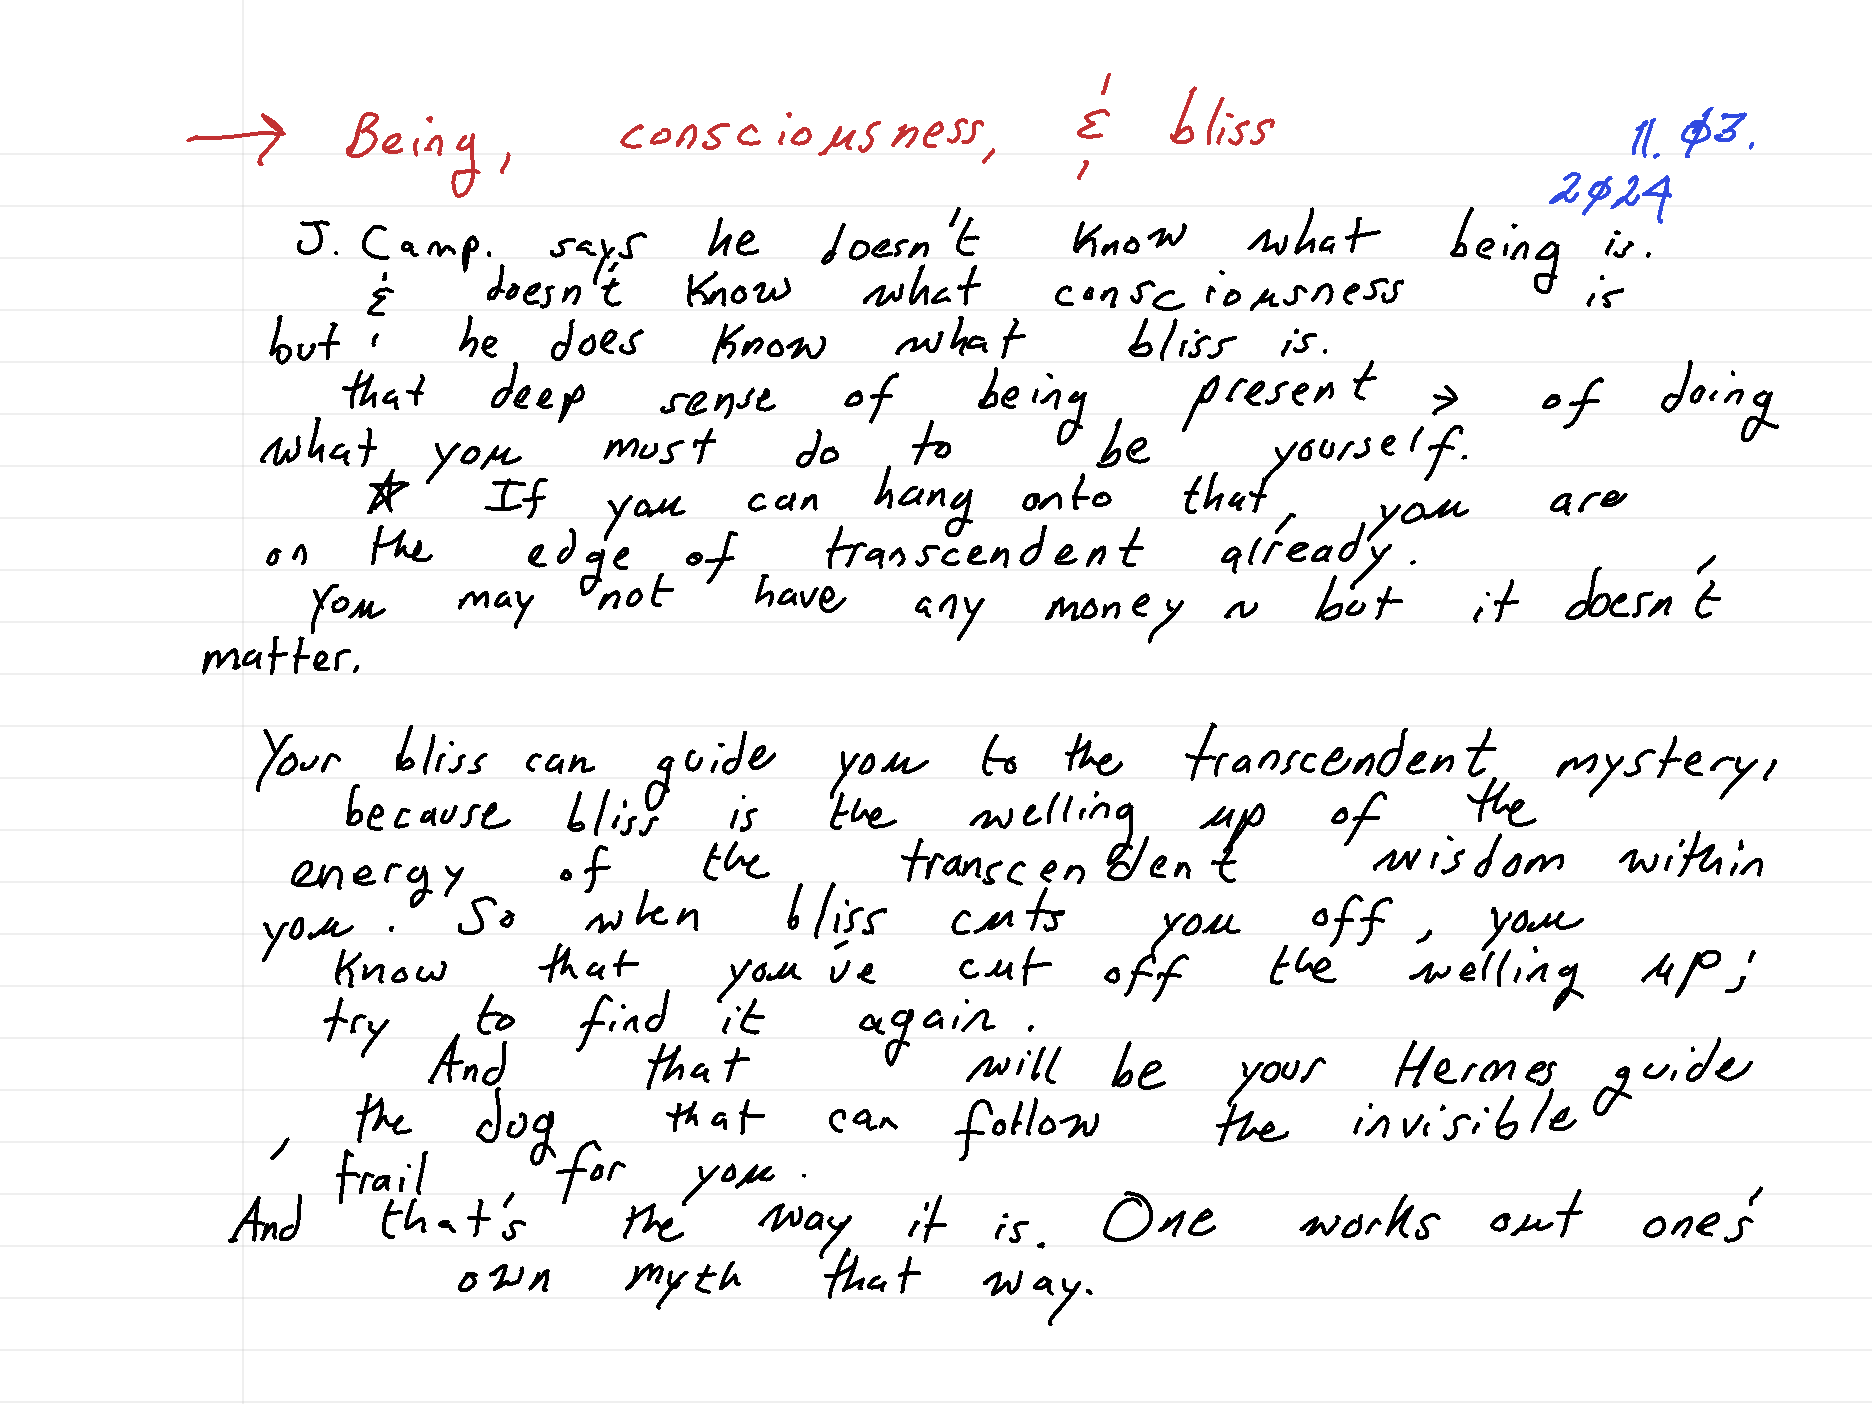 → Being, consciousness, & bliss
11.03.
2024
J. Camp. says he doesn't know what being is.
& doesn't know what consciousness is
but he does know what bliss is.
that deep sense of being present → of doing
what you must do to be yourself.
☆ If you can hang onto that, you are
on the edge of transcendent already.
You may not have any money ~ but it doesn't
matter.
Your bliss can guide you to the transcendent mystery,
because bliss is the welling up of the
energy of the transcendent wisdom within
you. So when bliss cuts you off, you
know that you've cut off the welling up;
try to find it again.
And that will be your Hermes guide
, the dog that can follow the invisible
trail for you.
And that's the way it is. One works out one's
own myth that way.